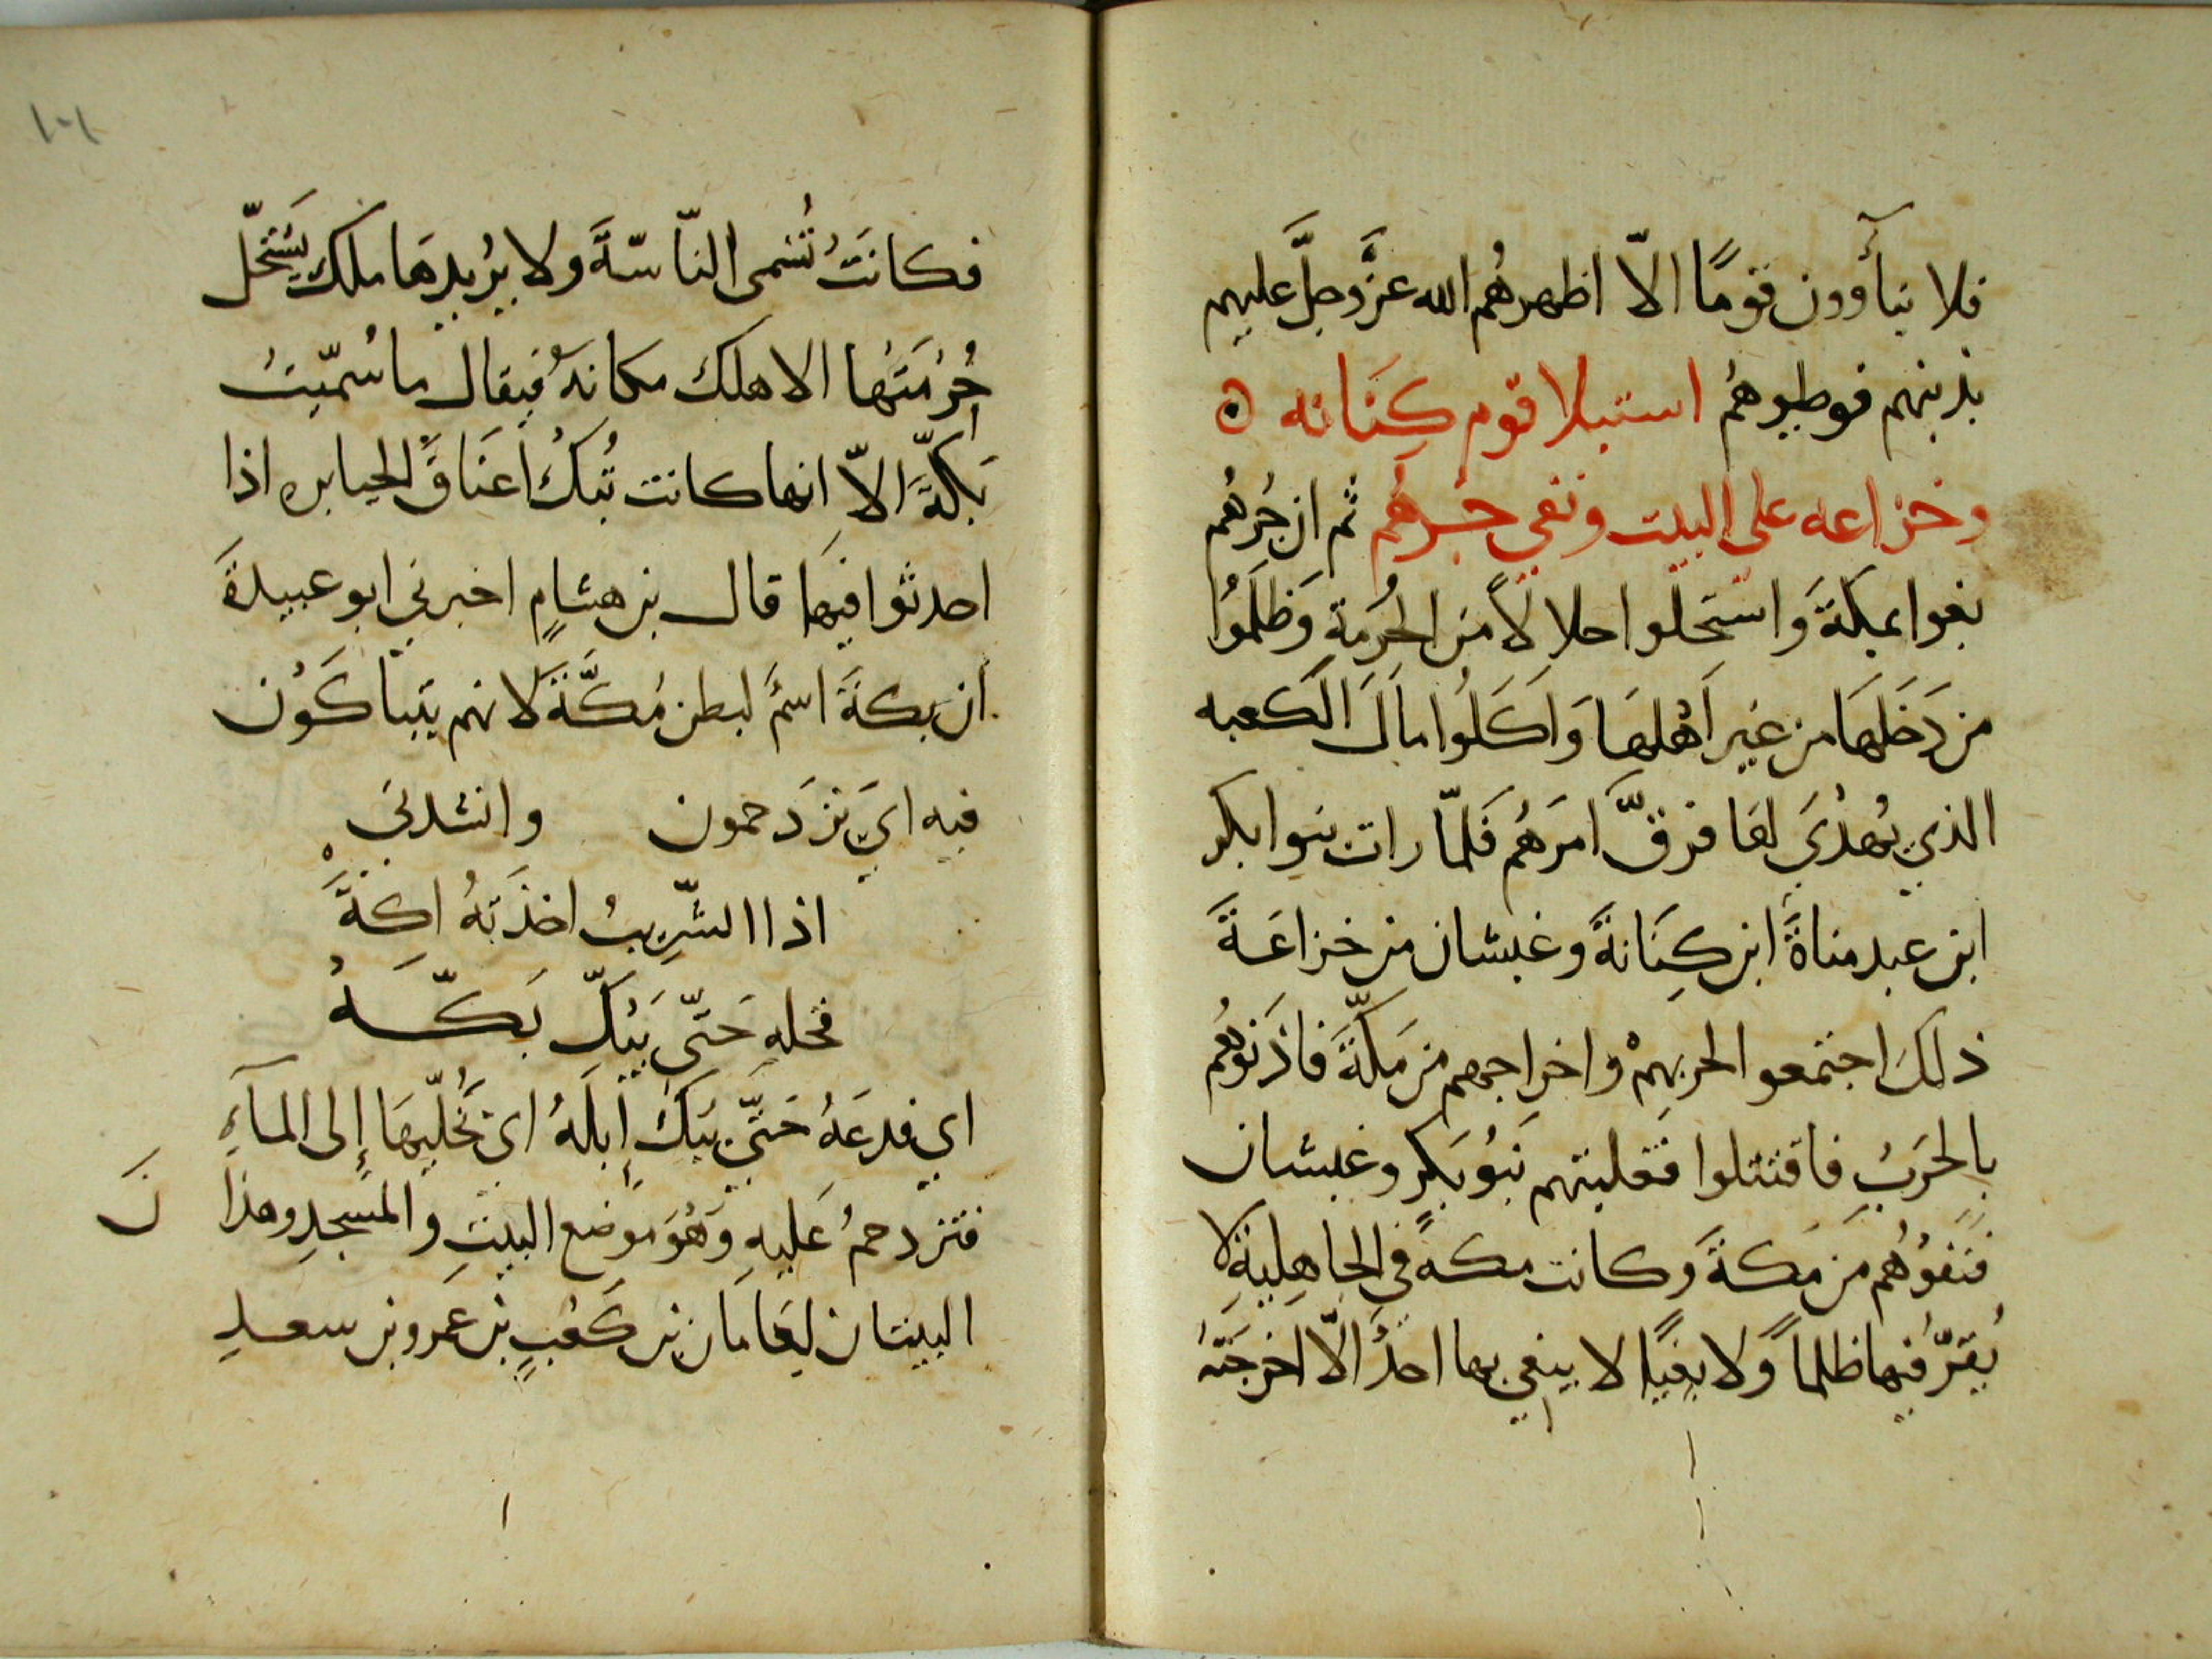 فلا نبآوون قومًا الّا اظهرهُم الله عزَّ وجلَّ عليهم
بدينهم فوطيوهُم استيلا قوم كِنَانه ۞
وخزاعه على البيت ونفي جُرهُم ثم ان جُرهُم
بغوا بمكةَ وَاستحلوا حلالاً من الحُرمةِ وَظلَمُوا
من دَخَلهَا من غير اَهْلهَا وَاَكَلُوا مالَ الكعبه
الذي يُهدْيَ لهَا فرقَّ امرَهُم فَلمّا رات بنوا بكر
ابن عبد مناةَ ابن كِنَانةَ وغبشان من خزاعَةَ
ذلكَ اجتمعوا لحربهِمْ واخراجهم من مَكّةَ فاذَنوُهُم
بالحَربِ فاقتتلوا فغلبتهم بَنُو بَكرٍ وغبشان
فَنَفوُهُم من مَكةَ وَكانت مكه في الجاهِليةِ لا
يُقرّ فيها ظلماً وَلا بغيًا لا يبغي بها احدٌ الّا اخرجَتهُ
١٠٦
فكانَتُ تُسَمى النّاسّةَ ولا يرُيدهَا ملك يَستحلّ
حُرُمَتَها الا هلك مكانهُ فيقال ما سُمّيتُ
بَكّةَ الّا انها كانت تُبكُ اعنَاقَ الجبابره اذا
احدثوا فيهَا قال بن هشامٍ اخبرني ابو عبيدةَ
ان بكةَ اسمٌ لبطن مُكَّةَ لانهم يتباكَوُن
فيه ايَ يَزدَحمون وانشدني
اذا الشّرِيبُ اخذَتهُ اكةَّ
فخله حَتّى يَبُكّ بَكّهُ
اي فدعَهُ حَتّي يبَكَ اِبلَهُ اي تُخَلّيهَا إلى المآءِ
فتزدحمُ عَليهِ وَهُوَ موضع البيتِ والمسَجدِ وهذا
نَ
البيتان لِعَامَان بن كَعُبٍ بن عمَرو بن سعدِ